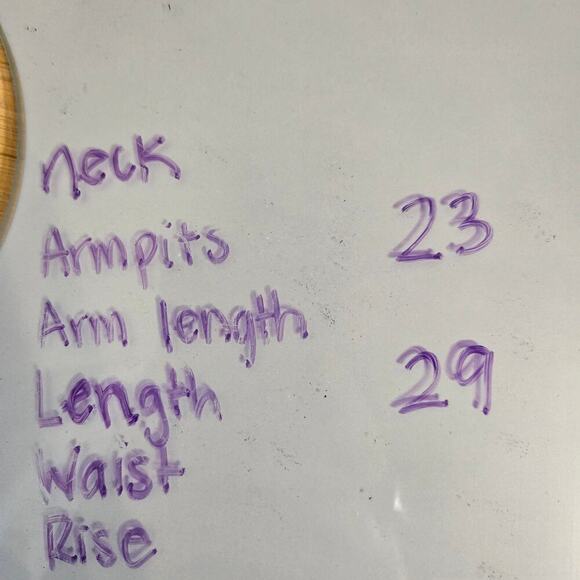 neck
Armpits 23
Arm length
Length 29
Waist
Rise